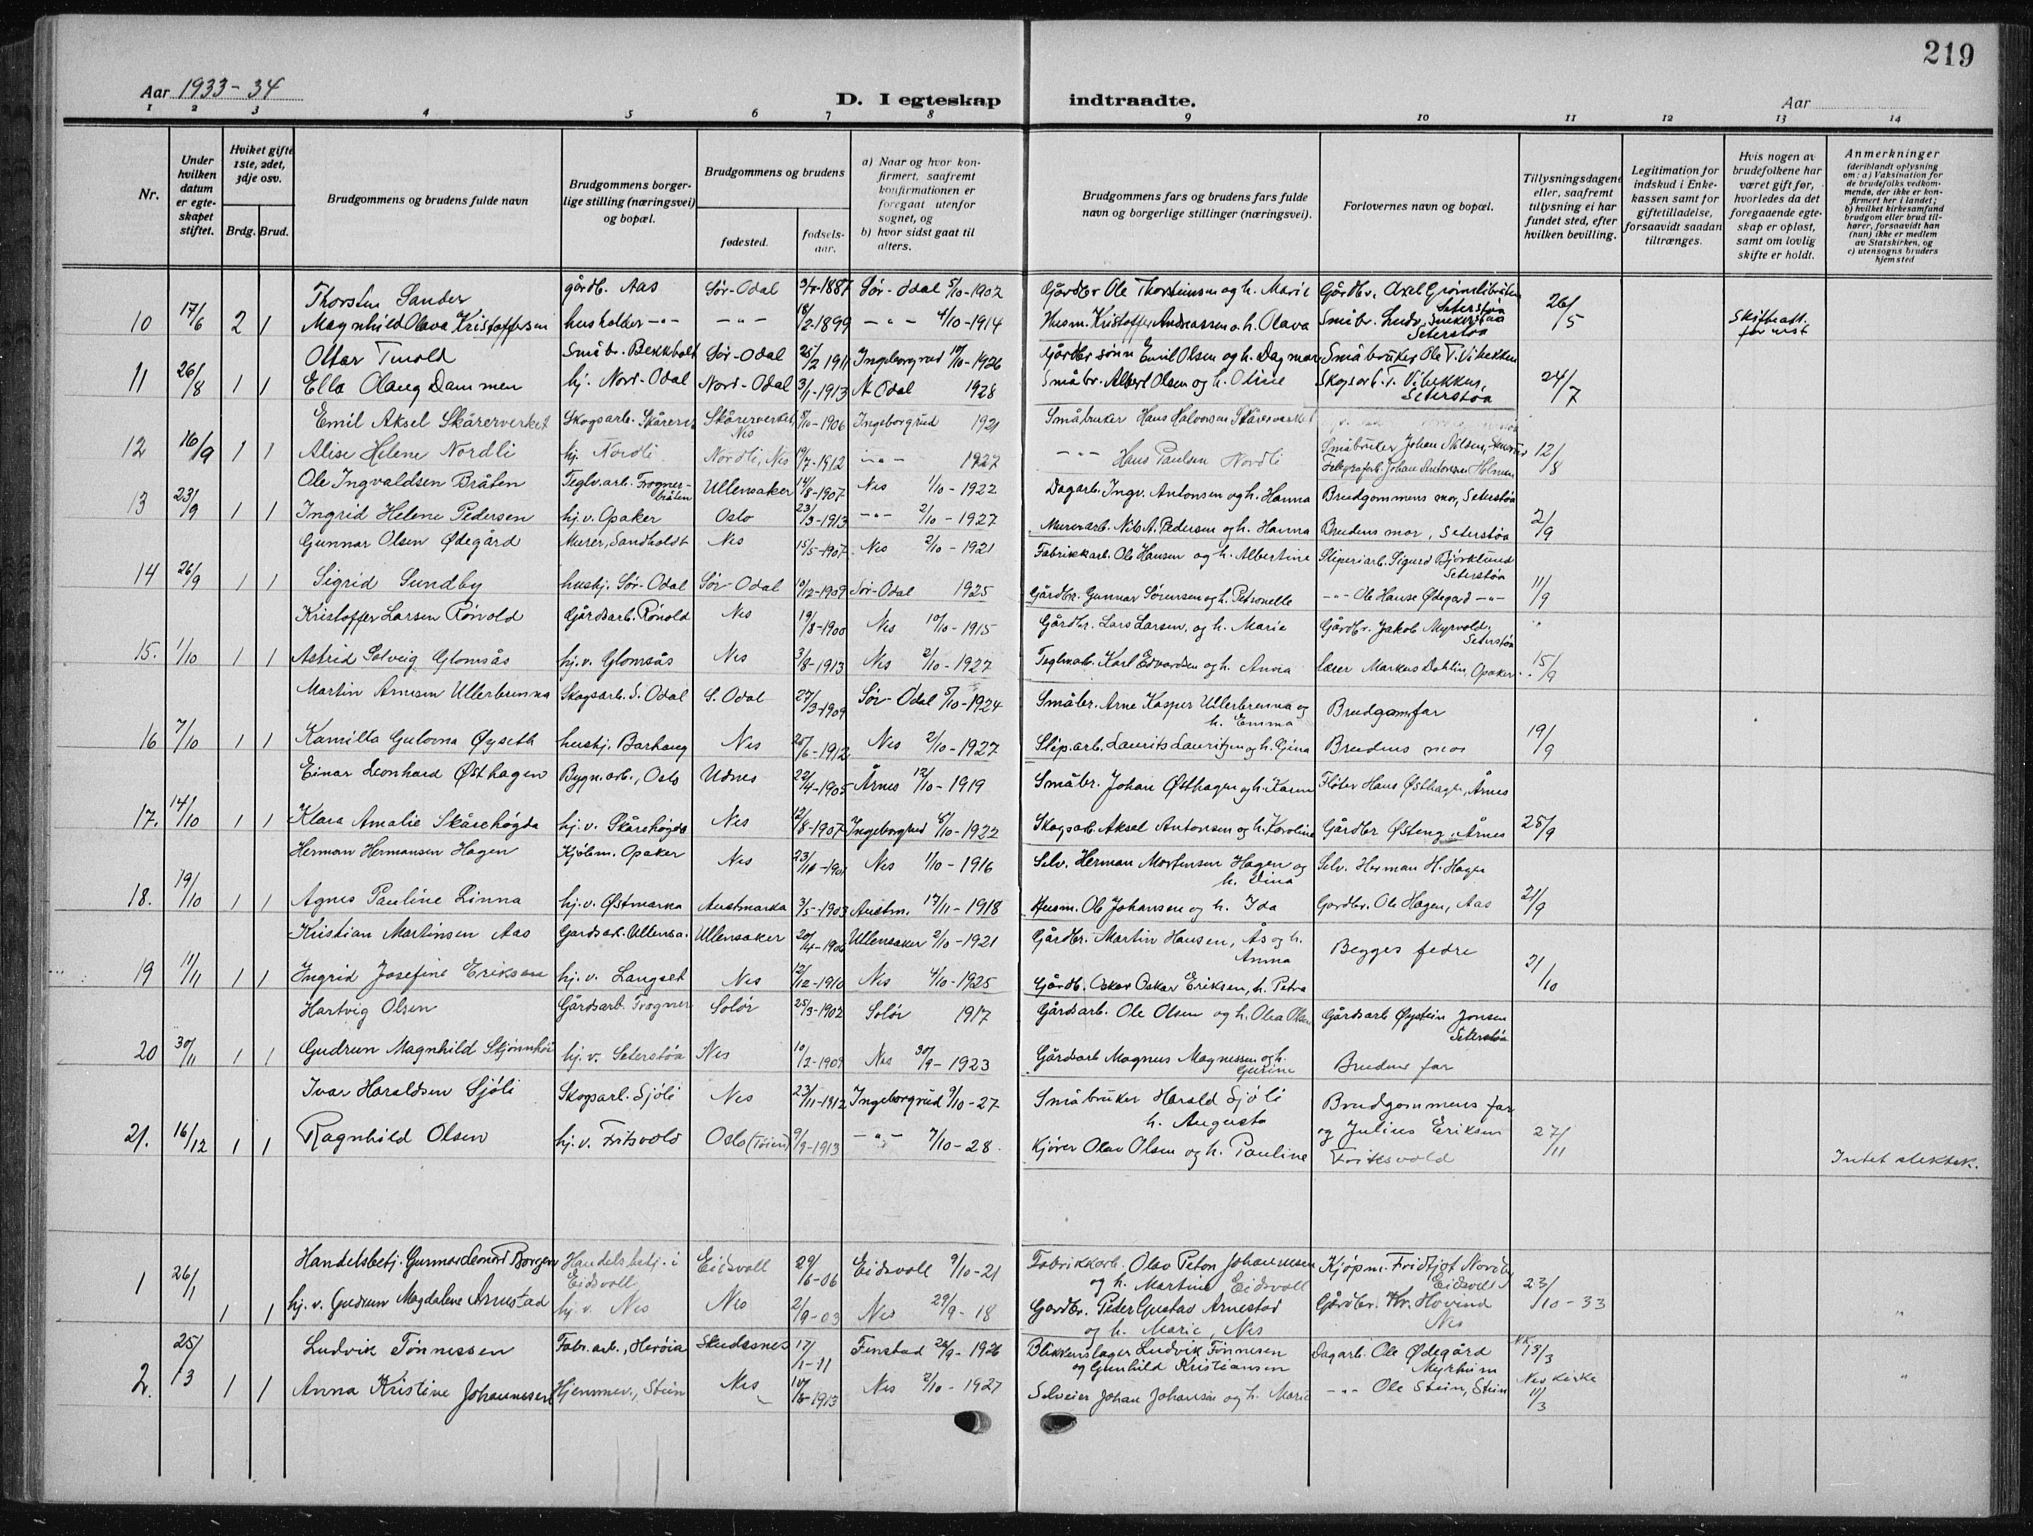 219
Aar 1933-34
D. I egteskap indtraadte.
Aar
1 2 3 4 5 6 7 8 9 10 11 12 13 14
Nr.
Under hvilken datum er egteskapet stiftet.
Hviket gifte 1ste, 2det, 3dje osv.
Brdg. Brud.
Brudgommens og brudens fulde navn
Brudgommens borgerlige stilling (næringsvei) og bopæl.
Brudgommens og brudens
fødested.
fødselsaar.
a) Naar og hvor konfirmert, saafremt konfirmationen er foregaat utenfor sognet, og
b) hvor sidst gaat til alters.
Brudgommens fars og brudens fars fulde navn og borgerlige stillinger (næringsvei).
Forlovernes navn og bopæl.
Tillysningsdagene eller, saafremt tillysning ei har fundet sted, efter hvilken bevilling.
Legitimation for indskud i Enkekassen samt for giftetilladelse, forsaavidt saadan tiltrænges.
Hvis nogen av brudefolkene har været gift før, hvorledes da det foregaaende egteskap er opløst, samt om lovlig skifte er holdt.
Anmerkninger (deriblandt oplysning om: a) Vaksination for de brudefolks vedkommende, der ikke er konfirmert her i landet; b) hvilket kirkesamfund brudgom eller brud tilhører, forsaavidt han (hun) ikke er medlem av Statskirken, og c) utensogns bruders hjemsted
Thorsten Sander gårdb. Aas Sør-Odal 1887 Sør-Odal 5/10-1902 Gårdbr Ole Thorstensen og h. Marie Gårdbr. Axel
10 17/6 2 1 Magnhild Olava Kristoffersen husholder -"- -"- 18/2-1899 -"- 4/10-1914 Husm. Kristoffer Andreassen o. h. Olava Småbr. Ludv. Seterstøa 26/5
Ottar Tuold Småbr. Bekkholt Sør-Odal 25/2 1911 Ingeborgrud 10/10-1926 Gårdbr sønn Emil Olsen og h. Dagmar Småbruker Ole T. Vibekken
11 26/8 1 1 Ella Olaug Dammen hj. Nord-Odal Nord-Odal 3/1-1913 N Odal 1928 Småbr. Albert Olsen og h. Oline Skogsarb. T. Vibekken, Seterstøa 24/7
Emil Aksel Skårerverket Skogsarb. Skårerv. Skårerverket, Nes 1906 Ingeborgrud 1921 Småbruker Hans Halvorsen Skårerverket
12 16/9 1 1 Alise Helene Nordli hj. Nordli Nordli, Nes 1912 -"- 1927 -"- Hans Paulsen Nordli Småbruker Johan Nilsen, 12/8
Ole Ingvaldsen Bråten Teglv.arb. Frognerbråten Ullensaker 14/8-1907 Nes 1/10-1922 Dagarb. Ingv. Antonsen og h. Hanna Brudgommens mor, Seterstøa
13 23/9 1 1 Ingrid Helene Pedersen hj. v. Opaker Oslo 23/3-1913 -"- 2/10-1927 Murerarb. Nils A. Pedersen og h. Hanna Brudens mor, Seterstøa 2/9
Gunnar Olsen Ødegård Murer, Sandholdt Nes 15/5-1907 Nes 2/10-1921 Fabrikkarb. Ole Hansen og h. Albertine Sliperiarb. Sigurd Bjørklund Seterstøa
14 26/9 1 1 Sigrid Sundby hushj. Sør-Odal Sør-Odal 10/12-1909 Sør-Odal 1925 Gårdbr. Gunnar Sørensen og h. Petronelle -"- Ole Hanse Ødegård -"- 11/9
Kristoffer Larsen Rønold Gårdsarb. Rønold Nes 19/8-1900 Nes 10/10-1915 Gårdbr. Lars Larsen, og h. Marie Gårdbr. Jakob Myrvold, Seterstøa
15. 1/10 1 1 Astrid Solveig Glomsås hj. v. Glomsås Nes 3/8-1913 Nes 2/10-1927 Teglmarb. Karl Edvardsen og h. Anna lærer Markus Dahlin, Opaker 15/9
Martin Arnesen Ullerbrenna Skogsarb. S. Odal S. Odal 27/3-1909 Sør-Odal 5/10-1924 Småbr. Arne Kasper Ullerbrenna og h. Emma Brudgomfar
16 7/10 1 1 Kamilla Gulovna Øyseth hushj. Barhaug Nes 25/6-1912 Nes 2/10-1927 Slip.arb. Laurits Lauritzen og h. Gina Brudens mor 19/9
Einar Leonhard Østhagen Bygn.arb., Oslo Udnes 22/4-1905 Årnes 12/10-1919 Småbr. Johan Østhagen og h. Karen Fløter Hans Østhagen, Årnes
17. 14/10 1 1 Klara Amalie Skårehøgda hj. v. Skårehøgda Nes 12/8-1907 Ingeborgrud 8/10-1922 Skogsarb. Aksel Antonsen og h. Karoline Gårdbr Østeng, Årnes 25/9
Herman Hermansen Hagen Kjølem. Opaker Nes Nes 1/10-1916 Selv. Herman Mortensen Hagen og h. Dina Selv. Herman H. Hagen
18. 19/10 1 1 Agnes Pauline Linna hj. v. Østmarka Austmarka 3/5-1903 Austm. 17/11-1918 Husm. Ole Johansen og h. Ida Gardbr. Ole Hagen, Aas 21/9
Kristian Martinsen Aas Gardsarb. Ullensa. Ullensaker Ullensaker 2/10-1921 Gårdbr. Martin Hansen, Ås og h. Anna Begges fedre
19 11/11 1 1 Ingrid Josefine Eriksen hj. v. Langset Nes 12/12-1910 Nes 4/10-1925 Gårdb. Oskar Oskar Eriksen, h. Petra 21/10
Hartvig Olsen Gårdsarb. Frogner Solør 25/3-1902 Solør 1917 Gårdsarb. Ole Olsen og h. Olea Olsen Gårdsarb Øystein Jonsen Seterstøa
20 30/11 1 1 Gudrun Magnhild Skjønnhøi hj. v. Seterstøa Nes 10/2-1909 Nes 30/9-1923 Gårdsarb Magnus Magnessen og h. Gurine Brudens far
Ivar Haraldsen Sjøli Skogsarb. Sjøli Nes 23/11-1912 Ingeborgrud 9/10-27 Småbruker Harald Sjøli h. Augusta Brudgommens far
21. 16/12 1 1 Ragnhild Olsen hj. v. Fritsvold Oslo (Tøien) 9/9-1913 -"- 7/10-28. Kjører Olav Olsen og h. Pauline og Julius Eriksen Friksvold 27/11 Intet slektsk.
Handelsbetj. Gunnar Leonard Borgen Handelsbetj. i Eidsvoll Eidsvoll 29/6-06 Eidsvoll 9/10-21 Fabrikkarb. Olav Peton Johannessen og h. Martine Eidsvoll Kjøpm. Fridtjof Eidsvoll
1 26/1 1 1 hj. v. Gudrun Magdalene Arnestad hj. v. Nes Nes 2/9-03 Nes 29/9-18 Gardbr. Peder Gustav Arnestad og h. Marie, Nes Gårdbr. Kr. Hovind Nes 23/10-33 "
Ludvik Tønnessen Fabr.arb., Herøia Skudesnes 17/1-11 Finstad 26/9-1926 Blikkenslager Ludvik Tønnesen og Gunhild Kristiansen Dagarb. Ole Ødegård Myrheim 13/3
2. 25/3 1 1 Anna Kristine Johannesen Hjemmev., Stein Nes 1913 Nes 2/10-1927 Selveier Johan Johansen og h. Marie -"- Ole Stein, Stein Nes kirke 11/3 "